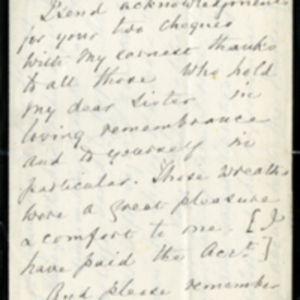 I send acknowledgments
for your two cheques
with my earnest thanks
to all those who hold
my dear Sister in
loving remembrance
and to yourself in
particular. Those wreaths
were a great pleasure
& comfort to me. [I
have paid the Acct.]
And please remember